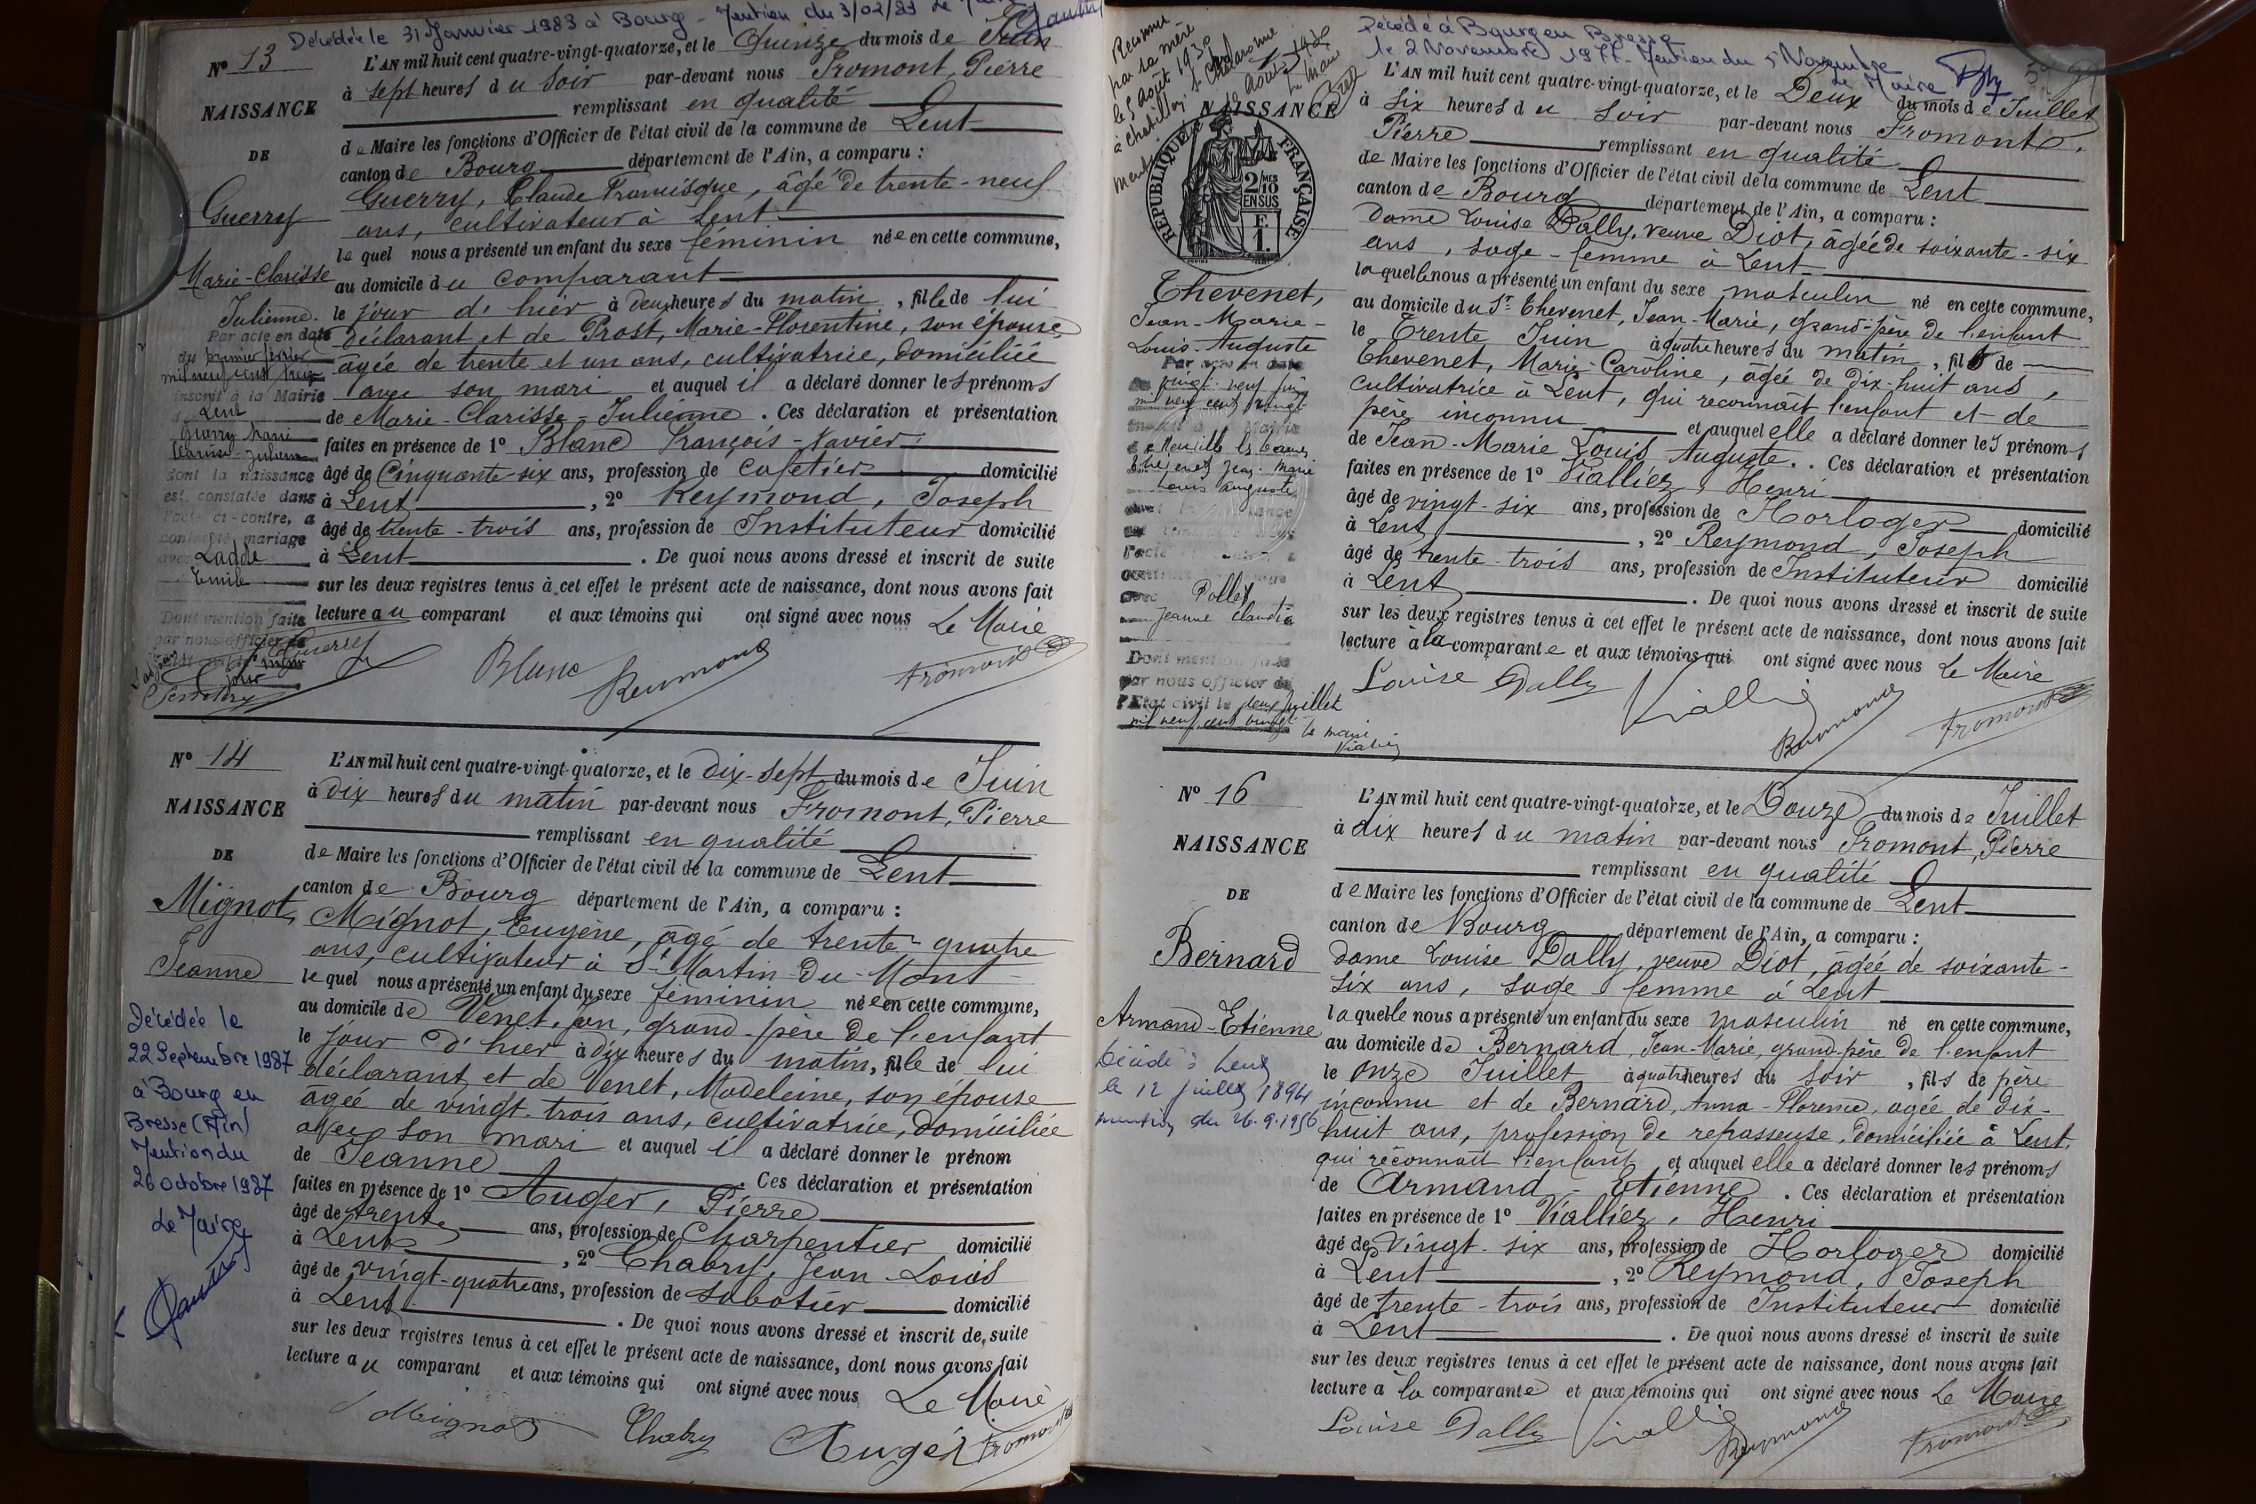 Décédée le 31 Janvier 1983 à Bourg - Mention du 3/02/83 Le Maire
N° 13
NAISSANCE
DE
Guerry
Marie-Clarisse
Julienne.
Par acte en date
du premier février
mil neuf cent
inscrit à la Mairie
d Lent
Guerry Marie
Clarisse-Julienne
dont la naissance
est constatée dans
l'acte ci-contre, a
contracté mariage
avec Ladde
Emile
Dont mention faite
par nous officier de
L'AN mil huit cent quatre-vingt-quatorze, et le Quinze du mois de Juin
à sept heures du soir par-devant nous Fromont, Pierre
remplissant en qualité
de Maire les fonctions d'Officier de l'état civil de la commune de Lent
canton de Bourg département de l'Ain, a comparu :
Guerry, Claude Francisque, âgé de trente-neuf
ans, cultivateur à Lent
le quel nous a présenté un enfant du sexe féminin née en cette commune,
au domicile du comparant
le jour d'hier à deux heures du matin, fille de lui
déclarant et de Prost, Marie-Florentine, son épouse
âgée de trente et un ans, cultivatrice, domiciliée
avec son mari et auquel il a déclaré donner les prénoms
de Marie-Clarisse-Julienne. Ces déclaration et présentation
faites en présence de 1° Blanc François-Xavier,
âgé de Cinquante-six ans, profession de cafetier domicilié
à Lent, 2° Reymond, Joseph
âgé de trente-trois ans, profession de Instituteur domicilié
à Lent. De quoi nous avons dressé et inscrit de suite
sur les deux registres tenus à cet effet le présent acte de naissance, dont nous avons fait
lecture au comparant et aux témoins qui ont signé avec nous Le Maire
Guerry Blanc Reymond Fromont
N° 14
NAISSANCE
DE
Mignot,
Jeanne
Décédée le
22 Septembre 1987
à Bourg en
Bresse (Ain)
Mention du
26 octobre 1987
Le Maire
L'AN mil huit cent quatre-vingt-quatorze, et le dix-sept du mois de Juin
à dix heures du matin par-devant nous Fromont, Pierre
remplissant en qualité
de Maire les fonctions d'Officier de l'état civil de la commune de Lent
canton de Bourg département de l'Ain, a comparu :
Mignot, Eugène, âgé de trente-quatre
ans, cultivateur à St Martin-du-Mont
le quel nous a présenté un enfant du sexe féminin née en cette commune,
au domicile de Venet, Jean, grand-père de l'enfant
le jour d'hier à dix heures du matin, fille de lui
déclarant et de Venet, Madeleine, son épouse
âgée de vingt-trois ans, cultivatrice, domiciliée
avec son mari et auquel il a déclaré donner le prénom
de Jeanne Ces déclaration et présentation
faites en présence de 1° Auger, Pierre
âgé de trente ans, profession de Charpentier domicilié
à Lent, 2° Chabry, Jean-Louis
âgé de vingt-quatre ans, profession de sabotier domicilié
à Lent. De quoi nous avons dressé et inscrit de suite
sur les deux registres tenus à cet effet le présent acte de naissance, dont nous avons fait
lecture au comparant et aux témoins qui ont signé avec nous Le Maire
Mignot Chabry Auger Fromont
Reconnu
par sa mère
le 5 août 1930
à Chatillon s/ Chalaronne
Décédé à Bourg en Bresse
le 2 Novembre 1977 - Mention du 5 Novembre
Le Maire
NAISSANCE
RÉPUBLIQUE FRANÇAISE
2/10 MES
EN SUS
F.
1.
Thevenet,
Jean-Marie-
Louis-Auguste
Par acte en date
du vingt-neuf juin
mil neuf cent vingt
Thevenet Jean Marie
Louis Auguste
avec Pollet
Jeanne Claudia
Dont mention faite
par nous officier de
l'Etat civil le deux juillet
mil neuf cent vingt
Le maire
L'AN mil huit cent quatre-vingt-quatorze, et le Deux du mois de Juillet
à six heures du soir par-devant nous Fromont,
Pierre remplissant en qualité
de Maire les fonctions d'Officier de l'état civil de la commune de Lent
canton de Bourg département de l'Ain, a comparu :
Dame Louise Dally, veuve Diot, âgée de soixante-six
ans, sage-femme à Lent
laquelle nous a présenté un enfant du sexe masculin né en cette commune,
au domicile du Sr Thevenet, Jean-Marie, grand-père de l'enfant
le Trente Juin à quatre heures du matin, fils de
Thevenet, Marie-Caroline, âgée de dix-huit ans,
cultivatrice à Lent, qui reconnait l'enfant et de
père inconnu et auquel elle a déclaré donner les prénoms
de Jean-Marie Louis Auguste. Ces déclaration et présentation
faites en présence de 1° Viallier, Henri
âgé de vingt-six ans, profession de Horloger domicilié
à Lent, 2° Reymond, Joseph
âgé de trente-trois ans, profession de Instituteur domicilié
à Lent. De quoi nous avons dressé et inscrit de suite
sur les deux registres tenus à cet effet le présent acte de naissance, dont nous avons fait
lecture à la comparante et aux témoins qui ont signé avec nous Le Maire
Louise Dally Viallier Reymond Fromont
N° 16
NAISSANCE
DE
Bernard
Armand-Etienne
Décédé à Lent
le 12 juillet 1894
mention du 26.9.1956
L'AN mil huit cent quatre-vingt-quatorze, et le Douze du mois de Juillet
à dix heures du matin par-devant nous Fromont, Pierre
remplissant en qualité
de Maire les fonctions d'Officier de l'état civil de la commune de Lent
canton de Bourg département de l'Ain, a comparu :
Dame Louise Dally, veuve Diot, âgée de soixante-
six ans, sage-femme à Lent
laquelle nous a présenté un enfant du sexe masculin né en cette commune,
au domicile de Bernard, Jean-Marie, grand-père de l'enfant
le onze Juillet à quatre heures du soir, fils de père
inconnu et de Bernard, Anna-Florence, âgée de dix-
huit ans, profession de repasseuse, domiciliée à Lent,
qui reconnait l'enfant et auquel elle a déclaré donner les prénoms
de Armand-Etienne. Ces déclaration et présentation
faites en présence de 1° Viallier, Henri
âgé de vingt-six ans, profession de Horloger domicilié
à Lent, 2° Reymond, Joseph
âgé de trente-trois ans, profession de Instituteur domicilié
à Lent. De quoi nous avons dressé et inscrit de suite
sur les deux registres tenus à cet effet le présent acte de naissance, dont nous avons fait
lecture à la comparante et aux témoins qui ont signé avec nous Le Maire
Louise Dally Viallier Reymond Fromont